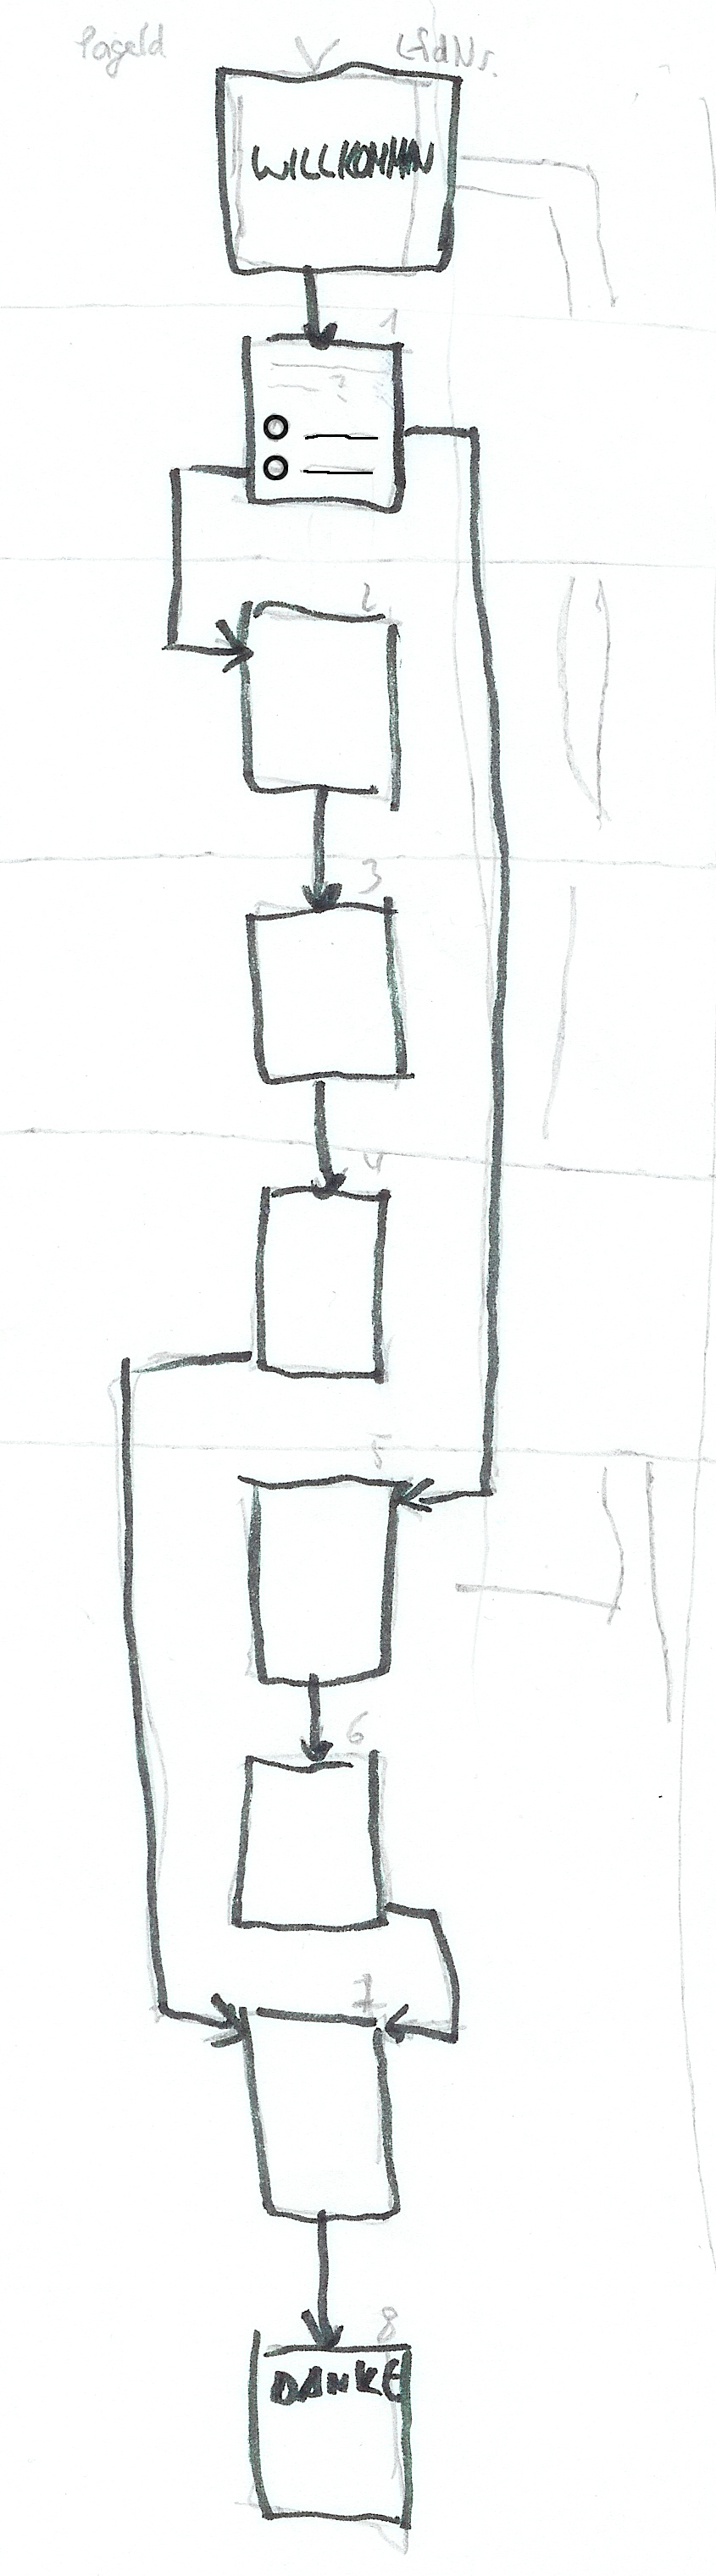 PageId LfdNr.
WILLKOMMEN
1
?
2
3
4
5
6
7
8
DANKE